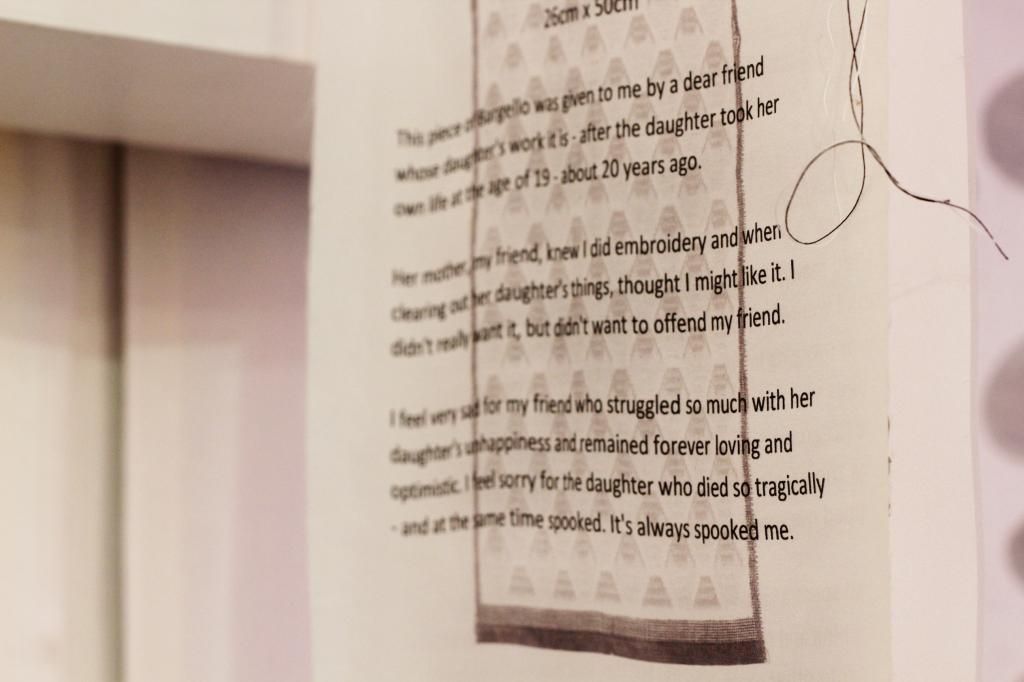 26cm x 50cm
This piece of Bargello was given to me by a dear friend
whose daughter's work it is - after the daughter took her
own life at the age of 19 - about 20 years ago.
Her mother, my friend, knew I did embroidery and when
clearing out her daughter's things, thought I might like it. I
didn't really want it, but didn't want to offend my friend.
I feel very sad for my friend who struggled so much with her
daughter's unhappiness and remained forever loving and
optimistic. I feel sorry for the daughter who died so tragically
- and at the same time spooked. It's always spooked me.